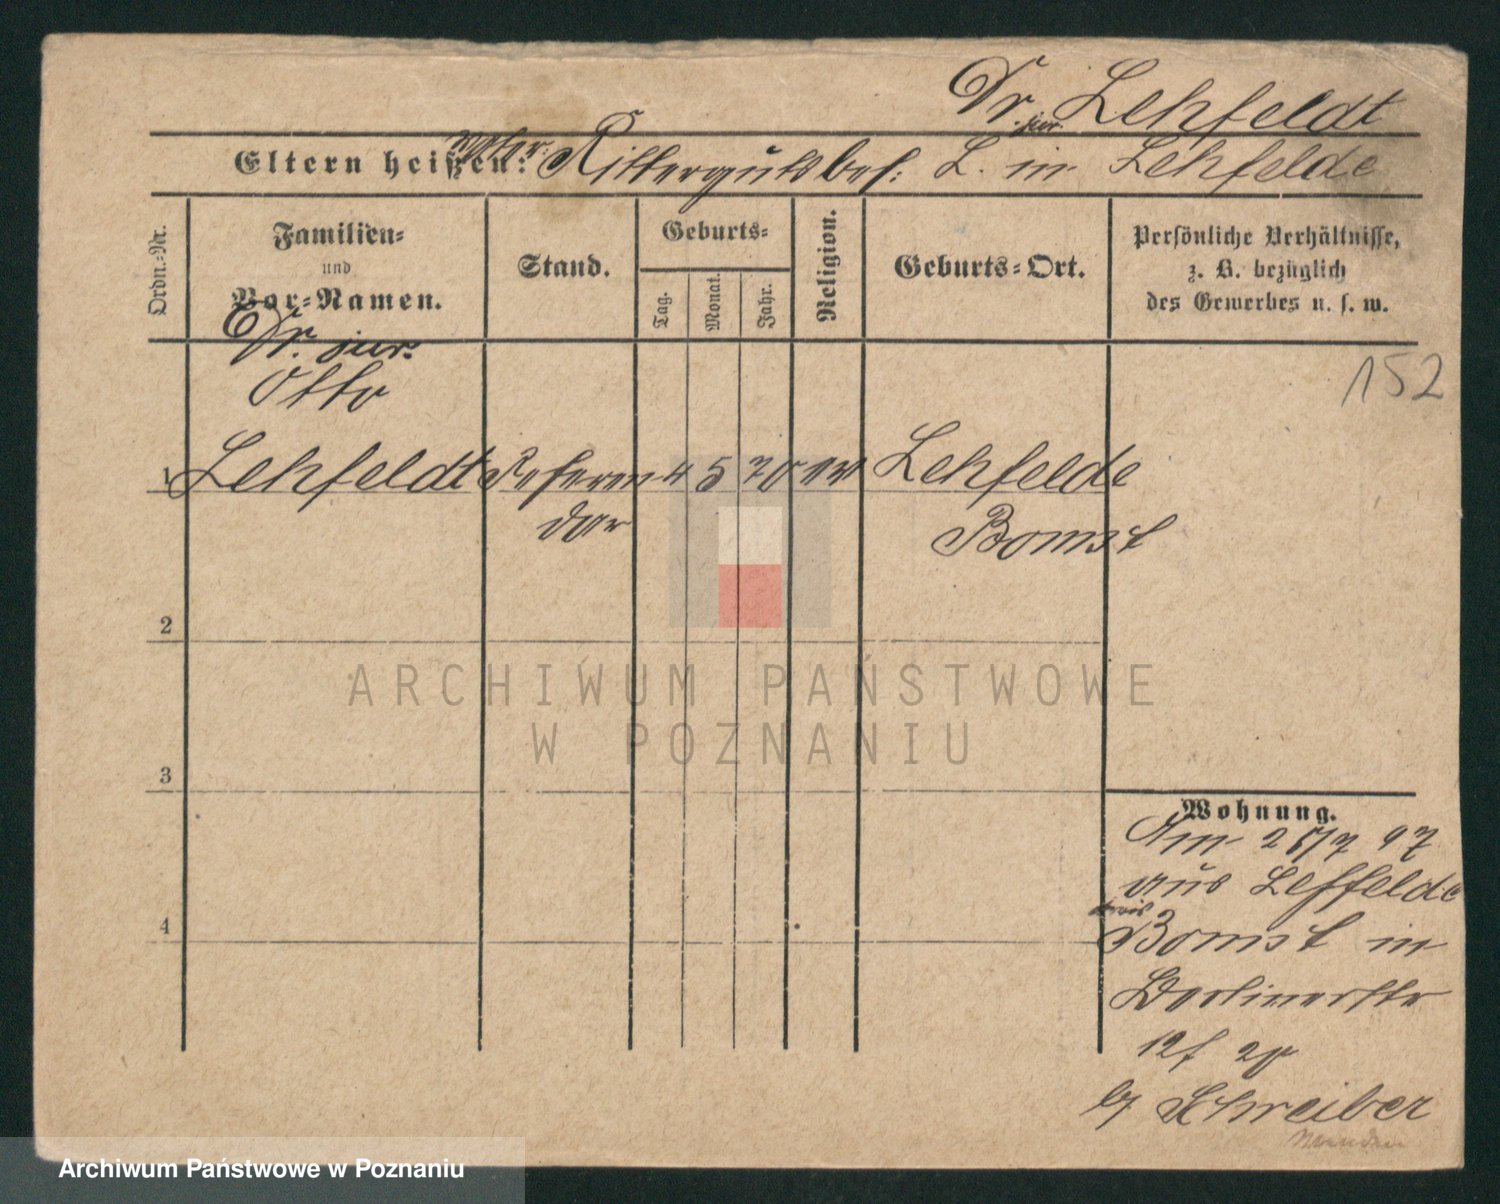 Dr. jur. Lehfeldt
Eltern heißen: Vater: Rittergutsbes: L. in Lehfelde
Ordn.-Nr.
Familien-
und
Vor-Namen.
Stand.
Geburts-
Tag.
Monat.
Jahr.
Religion.
Geburts-Ort.
Persönliche Verhältnisse,
z. B. bezüglich
des Gewerbes u. s. w.
152
Dr. jur.
Otto
1 Lehfeldt Referen 4 5 70 ev Lehfelde
dar Bomst
2
3
4
Wohnung.
Am 28/7 97
aus Lehfelde
Kreis
Bomst in
Berlinerstr
12
b/ Schreiber
ARCHIWUM PAŃSTWOWE
W POZNANIU
Archiwum Państwowe w Poznaniu